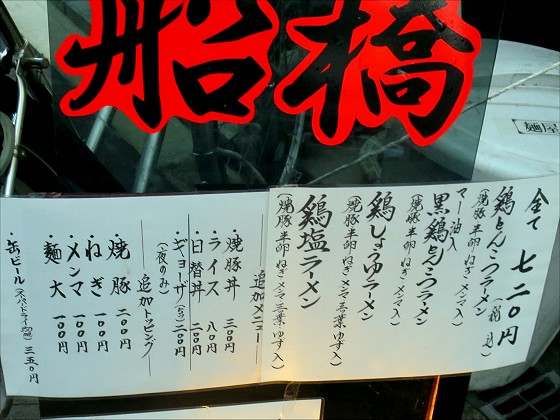 船橋
麺屋
全て 七二〇円
(税込)
鶏とんこつラーメン
(焼豚半卵ねぎメンマ入)
マー油入
黒鶏とんこつラーメン
(焼豚半卵ねぎメンマ入)
鶏しょうゆラーメン
(焼豚半卵ねぎメンマ三つ葉ゆず入)
鶏塩ラーメン
(焼豚半卵ねぎメンマ三つ葉ゆず入)
追加メニュー
・焼豚丼 三〇〇円
・ライス 八〇円
・日替丼 二〇〇円
・ギョーザ(5ヶ)二〇〇円
(夜のみ)
追加トッピング
・焼豚 二〇〇円
・ねぎ 一〇〇円
・メンマ 一〇〇円
・麺大 一〇〇円
・缶ビール(スーパードライ) 三五〇円